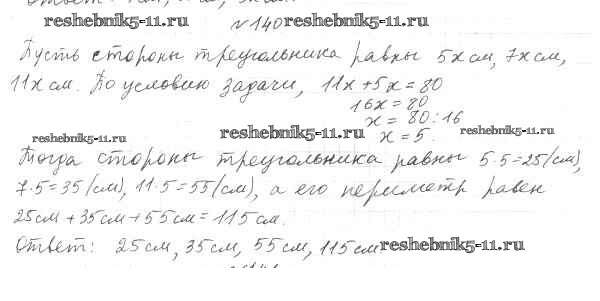 reshebnik5-11.ru № 140 reshebnik5-11.ru
Пусть стороны треугольника равны 5x см, 7x см,
11x см. По условию задачи, 11x + 5x = 80
16x = 80
x = 80 : 16
x = 5.
reshebnik5-11.ru reshebnik5-11.ru reshebnik5-11.ru
Тогда стороны треугольника равны 5·5=25(см),
7·5=35(см), 11·5=55(см), а его периметр равен
25см + 35см + 55см = 115см.
Ответ: 25см, 35см, 55см, 115см reshebnik5-11.ru